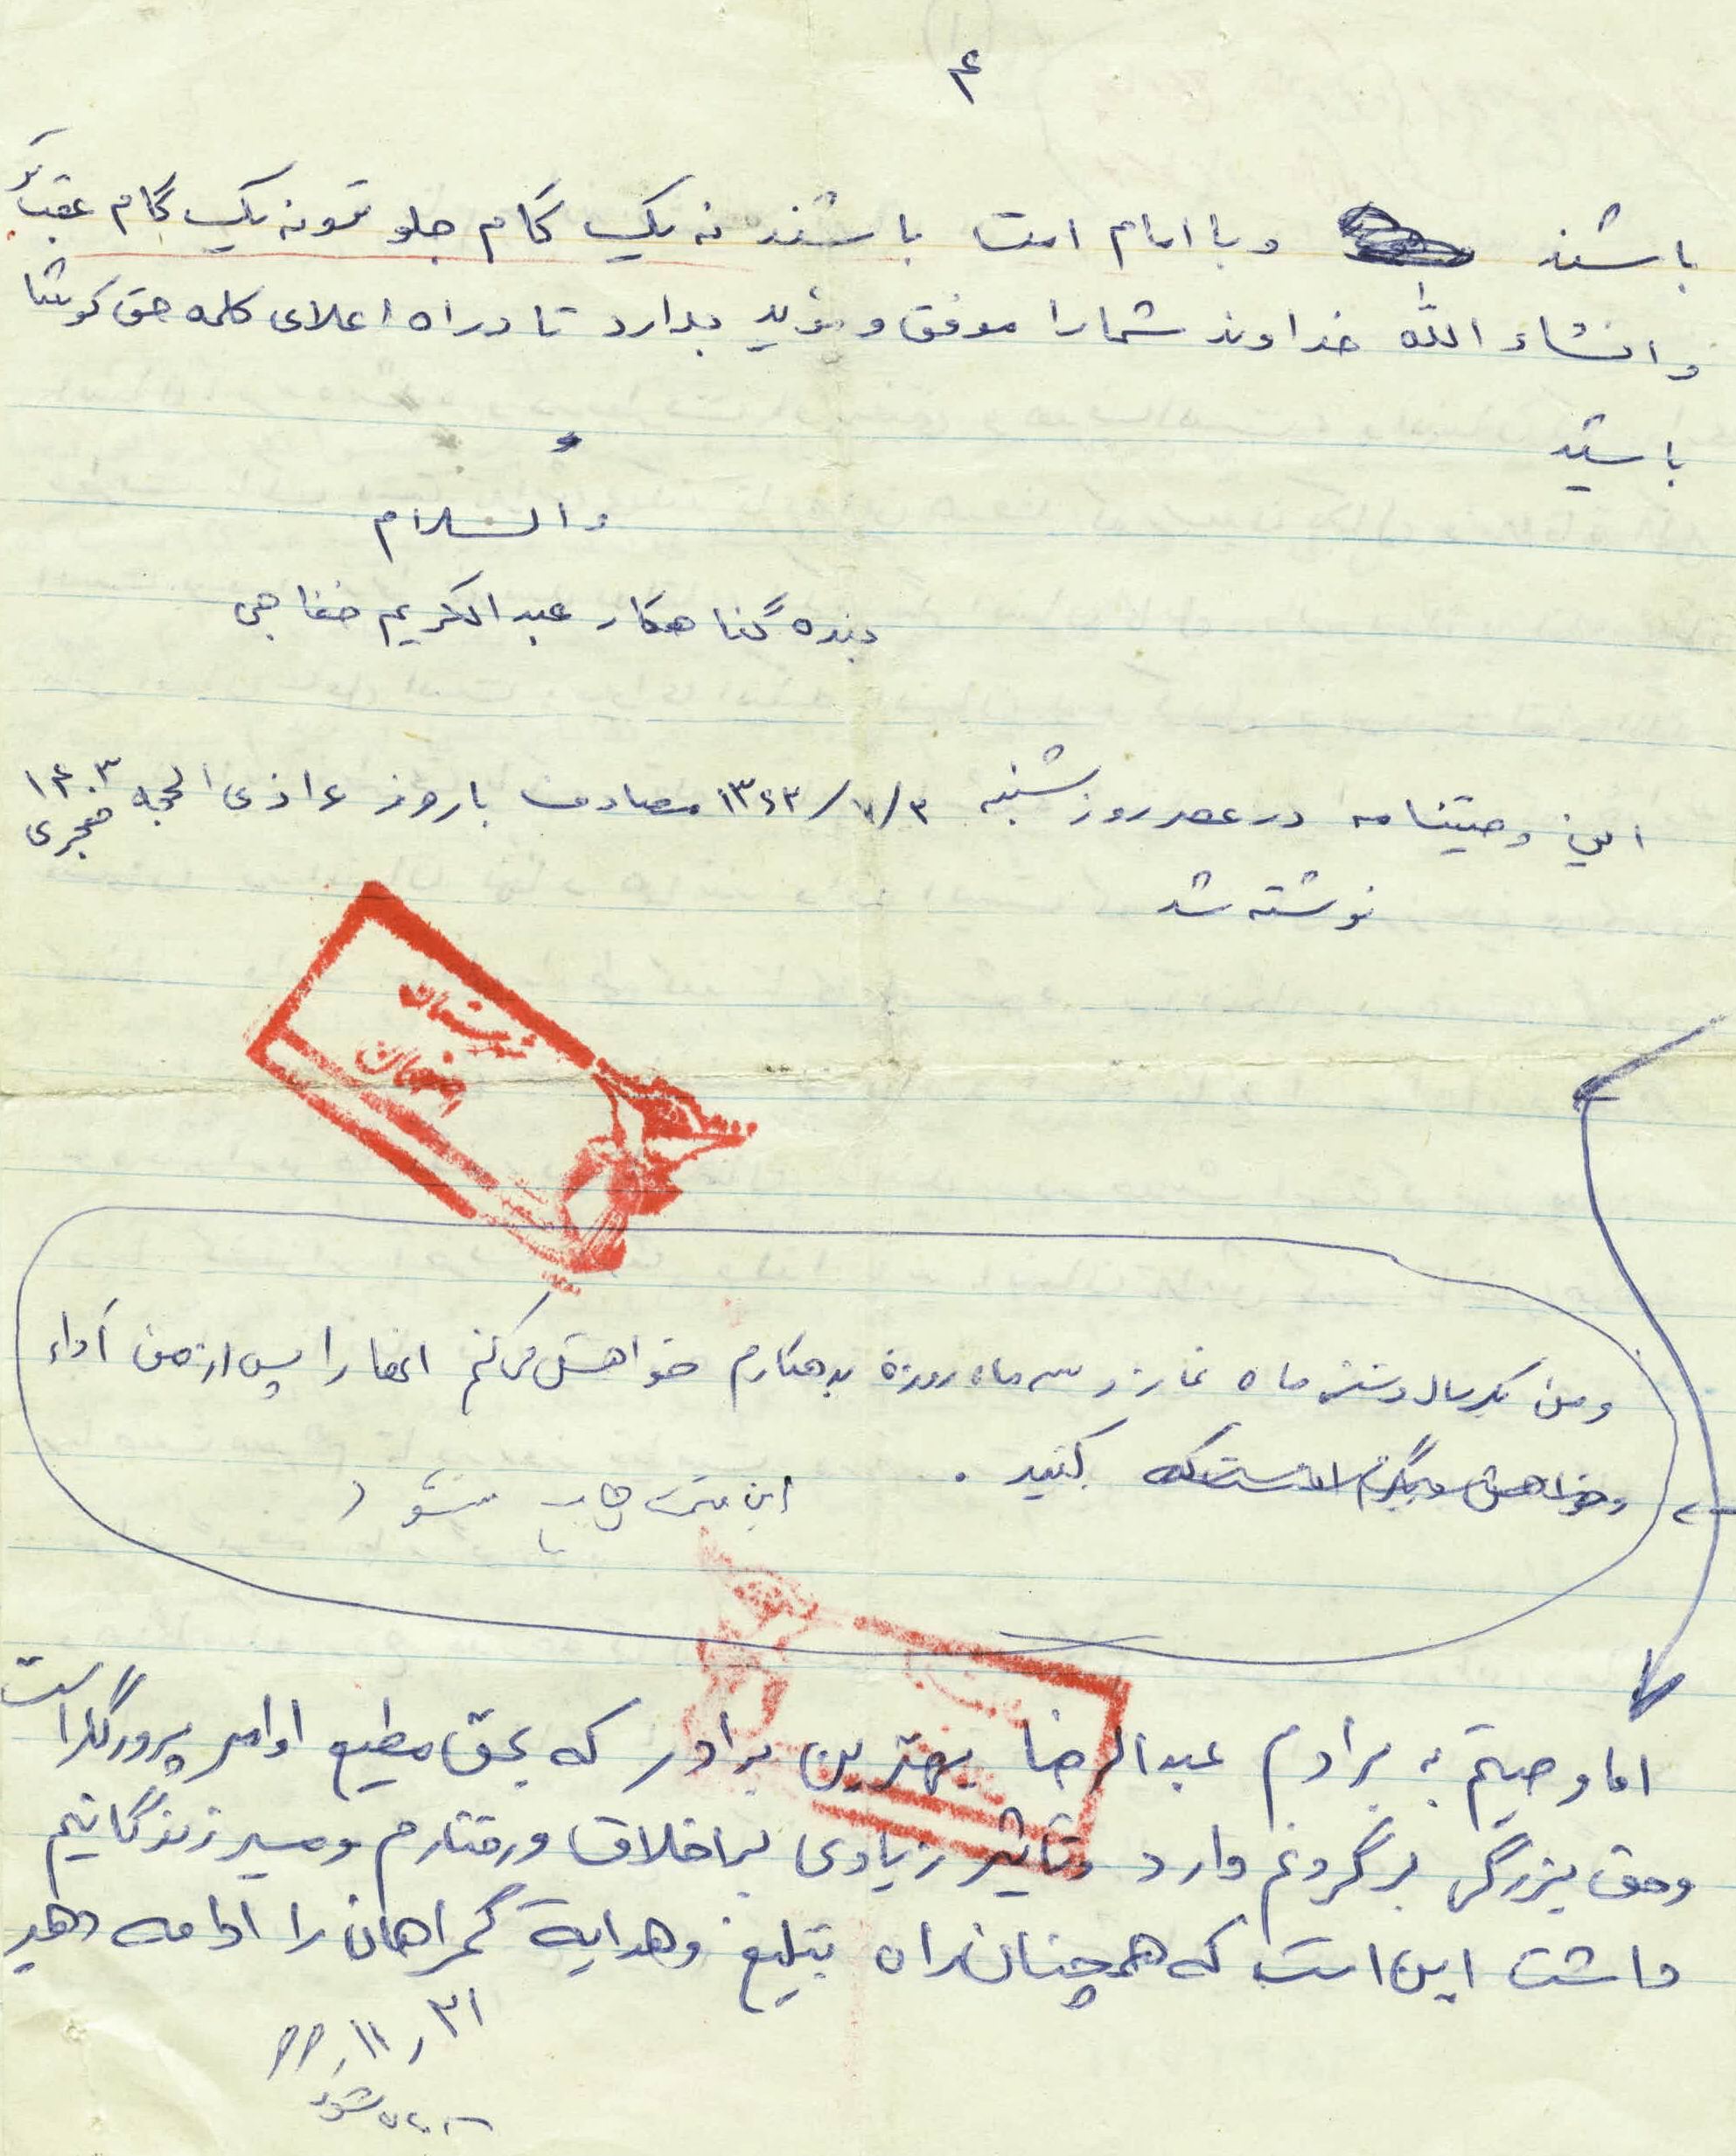 ۴
باشند و با امام امت باشند نه یک گام جلو تر و نه یک گام عقب تر
و انشاء الله خداوند شما را موفق و مؤید بدارد تا در راه اعلای کلمه حق کوشا
باشید
والسلام
بنده گناهکار عبدالکریم خفاجی
این وصیتنامه در عصر روز شنبه ۱۳۶۳/۷/۳ مصادف با روز ذی الحجه ۱۴۰۳ هجری
نوشته شد
اصفهان
و من یکسال و شش ماه نماز و سه ماه روزه بدهکارم خواهش می کنم انها را پس از من أداء
و خواهش دیگرم اینست که کنید .
این متن چاپ نشود
اما وصیتم به برادرم عبدالرضا بهترین برادر که بحق مطیع اوامر پروردگار است
و حق بزرگی بر گردنم دارد و تاثیر زیادی بر اخلاق و رفتارم و مسیر زندگانیم
داشت این است که همچنان راه تبلیغ و هدایة گمراهان را ادامه دهد